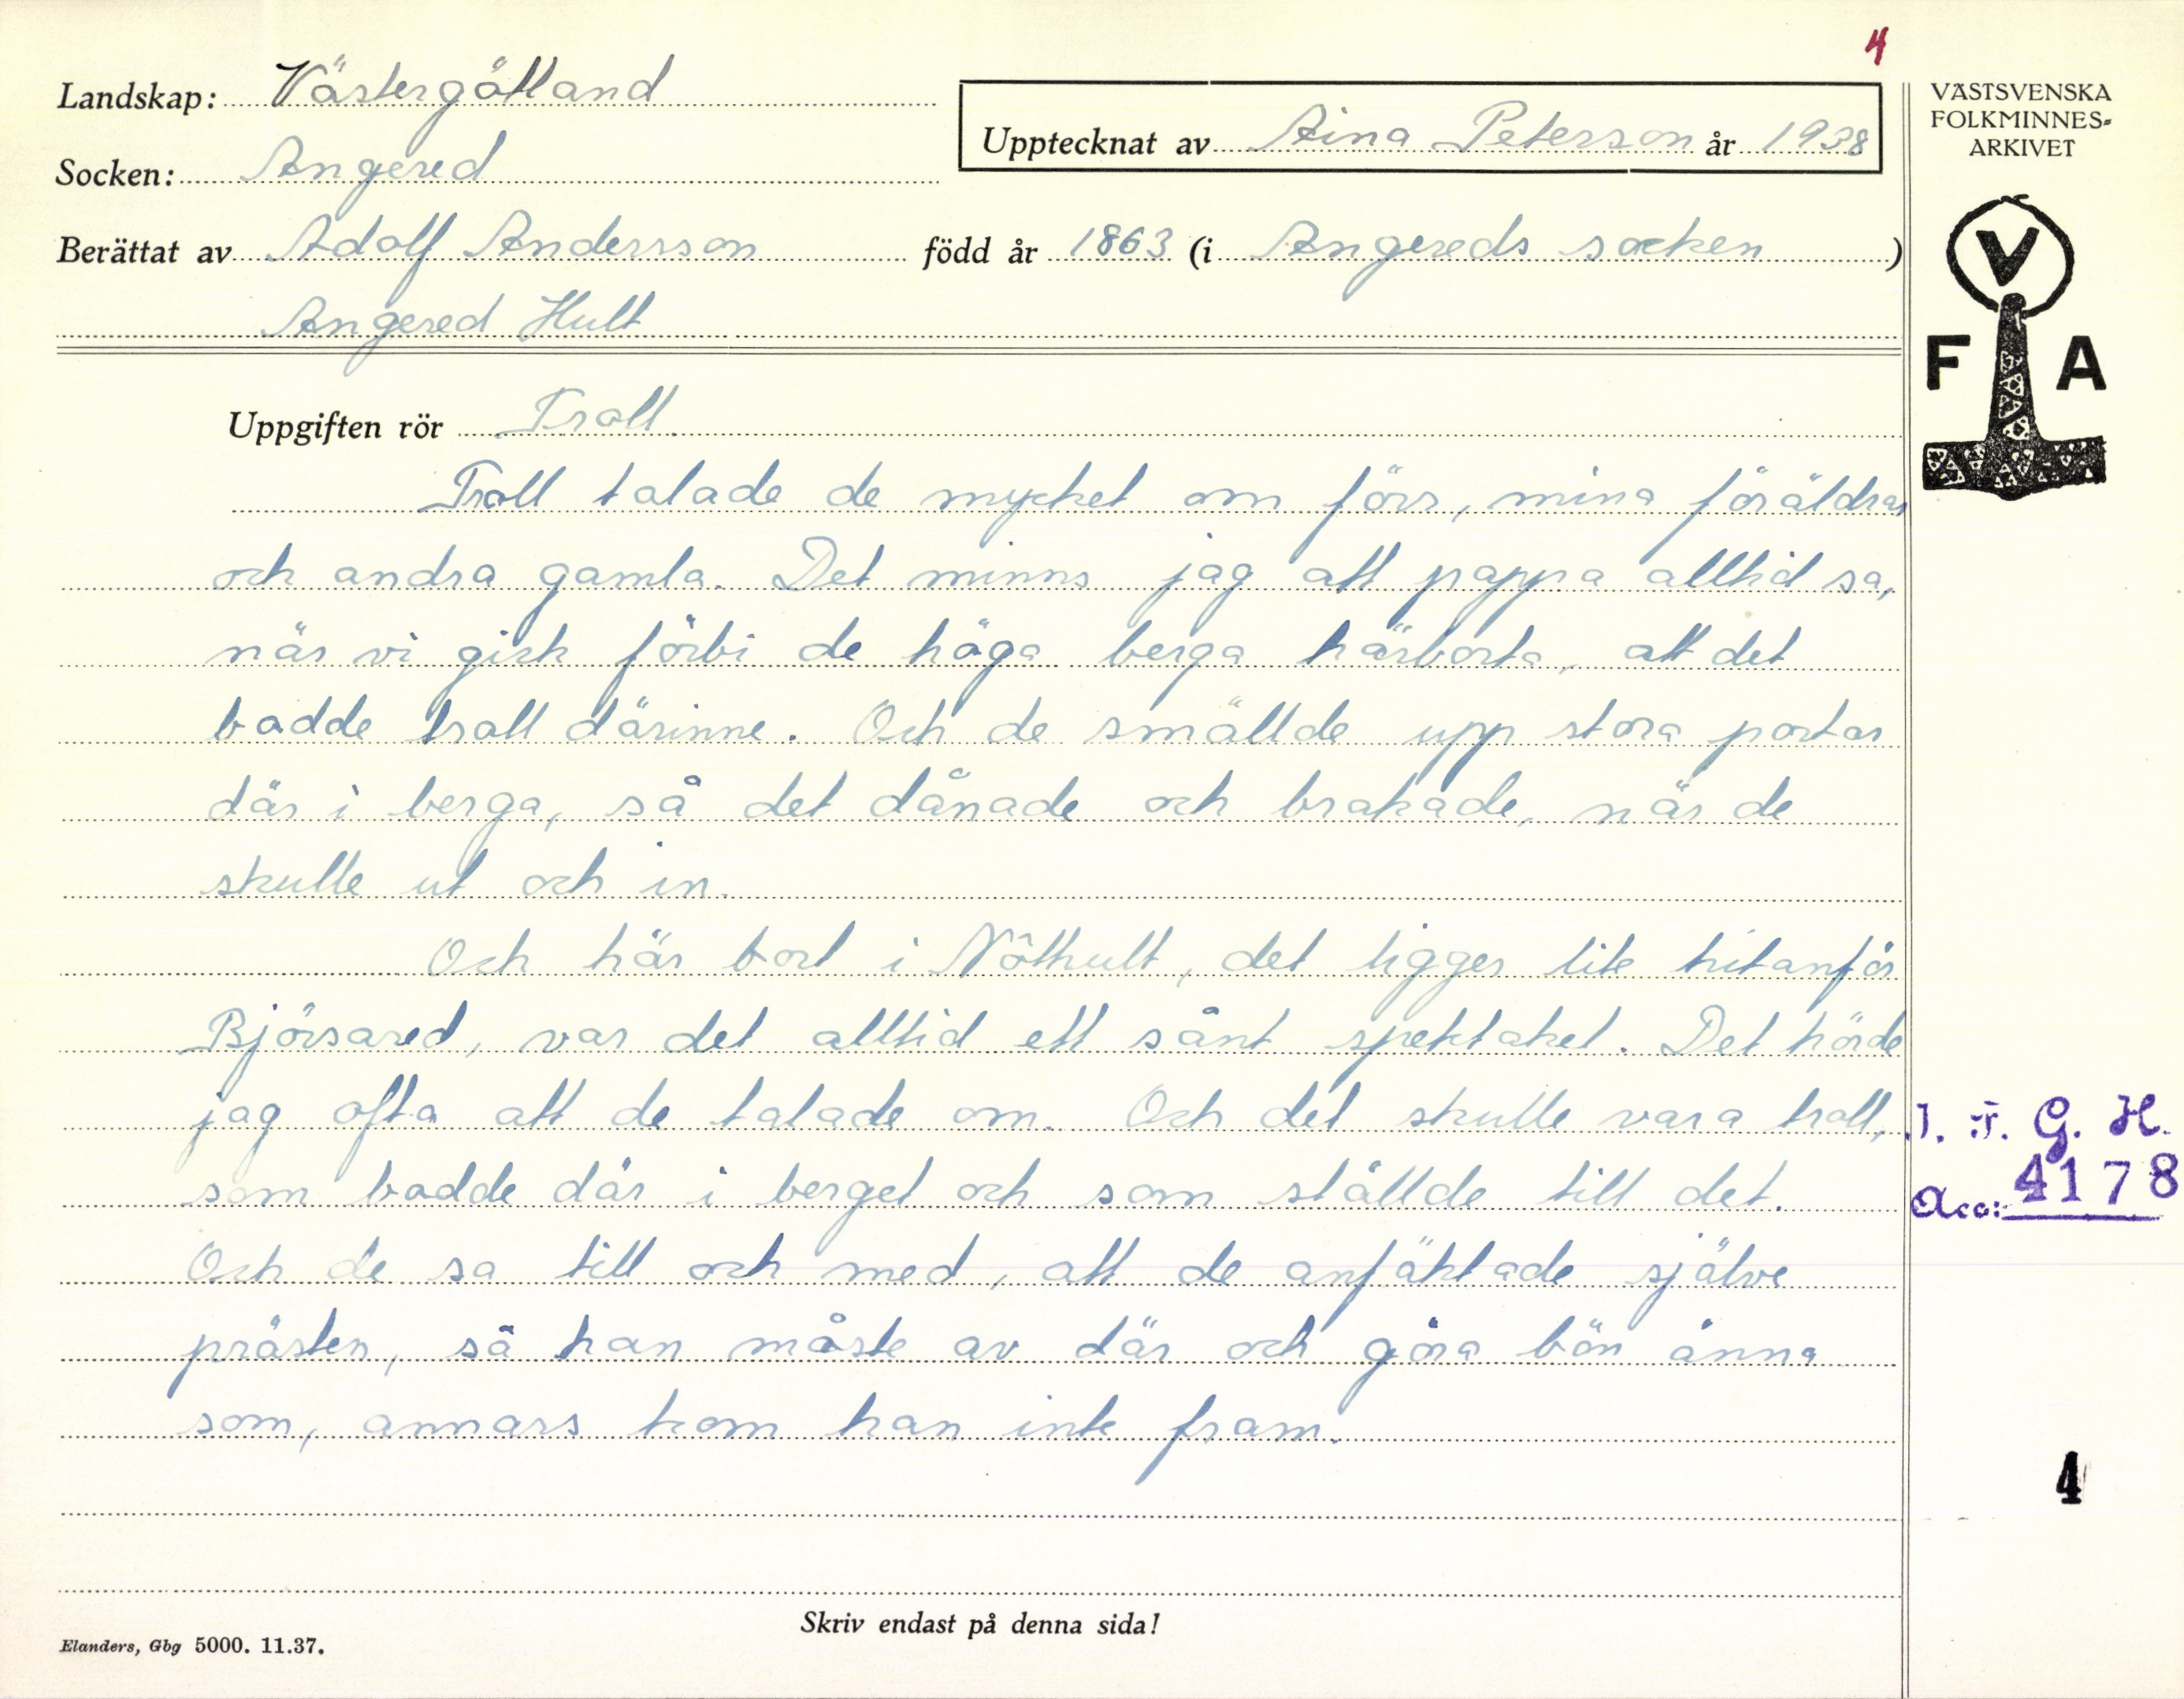 4
Landskap: Västergötland
Upptecknat av Aina Peterson år 1938
Socken: Angered
Berättat av Adolf Andersson född år 1863 (i Angereds socken)
Angered Hult
VÄSTSVENSKA
FOLKMINNES-
ARKIVET
V
F A
Uppgiften rör Troll.
Troll talade de mycket om förr, mina föräldrar
och andra gamla. Det minns jag att pappa alltid sa,
när vi gick förbi de höga berga härborta, att det
bodde troll därinne. Och de smällde upp stora portar
där i berga, så det dånade och brakade, när de
skulle ut och in.
Och här bort i Nöthult, det ligger lite hitanför
Björsared, var det alltid ett sånt spektakel. Det hörde
jag ofta att de talade om. Och det skulle vara troll,
som bodde där i berget och som ställde till det.
Och de sa till och med, att de anfäktade själve
prästen, så han måste av där och göra bön änna
som, annars kom han inte fram.
I. F. G. H.
Acc: 4178
4
Skriv endast på denna sida!
Elanders, Gbg 5000. 11.37.